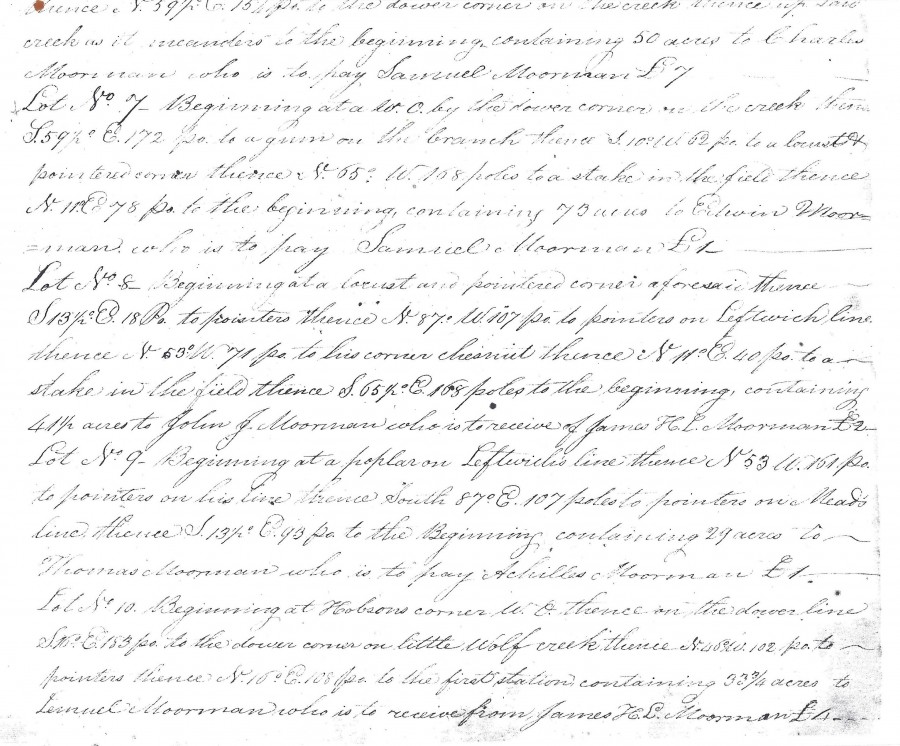 thence N. 59½° E. 154 po. to the dower corner on the creek thence up said
creek as it meanders to the beginning, containing 50 acres to Charles
Moorman who is to pay Samuel Moorman £7
Lot No. 7 Beginning at a W.O. by the dower corner on the creek thence
S. 59½° E. 172 po. to a gum on the branch thence S. 10° W. 62 po. to a locust &
pointered corner thence N. 65° W. 168 poles to a stake in the field thence
N. 11° E. 78 po. to the beginning, containing 73 acres to Edwin Moor=
=man who is to pay Samuel Moorman £1
Lot No. 8 Beginning at a locust and pointered corner aforesaid thence
S 13½° E. 18 Po. to pointers thence N. 87° W. 107 po. to pointers on Leftwich line
thence N. 53° W. 71 po. to his corner chesnut thence N 11° E. 40 po. to a
stake in the field thence S. 65½° E. 168 poles to the beginning, containing
41½ acres to John J. Moorman who is to receive of James H.L. Moorman £2
Lot No. 9 Beginning at a poplar on Leftwichs line thence N 53 W. 161 po.
to pointers on his line thence South 87° E. 107 poles to pointers on Meads
line thence S. 13½° E. 93 po to the Beginning containing 29 acres to
Thomas Moorman who is to pay Achilles Moorman £1
Lot No. 10. Beginning at Hobsons corner W.O. thence on the dower line
E. 153 po. to the dower corner on little Wolf creek thence N. 46° W. 102 po. to
pointers thence N. 16° E. 108 po. to the first station containing 33¾ acres to
Lemuel Moorman who is to receive from James H.L. Moorman £4